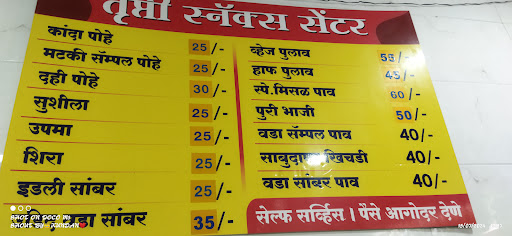 तृप्ती स्नॅक्स सेंटर
कांदा पोहे 25/-
मटकी सॅम्पल पोहे 25/-
दही पोहे 30/-
सुशीला 25/-
उपमा 25/-
शिरा 25/-
इडली सांबर 25/-
वडा सांबर 35/-
व्हेज पुलाव 55/-
हाफ पुलाव 45/-
स्पे.मिसळ पाव 60/-
पुरी भाजी 50/-
वडा सॅम्पल पाव 40/-
साबुदाणा खिचडी 40/-
वडा सांबर पाव 40/-
सेल्फ सर्व्हिस । पैसे आगोदर देणे
SHOT ON POCO M